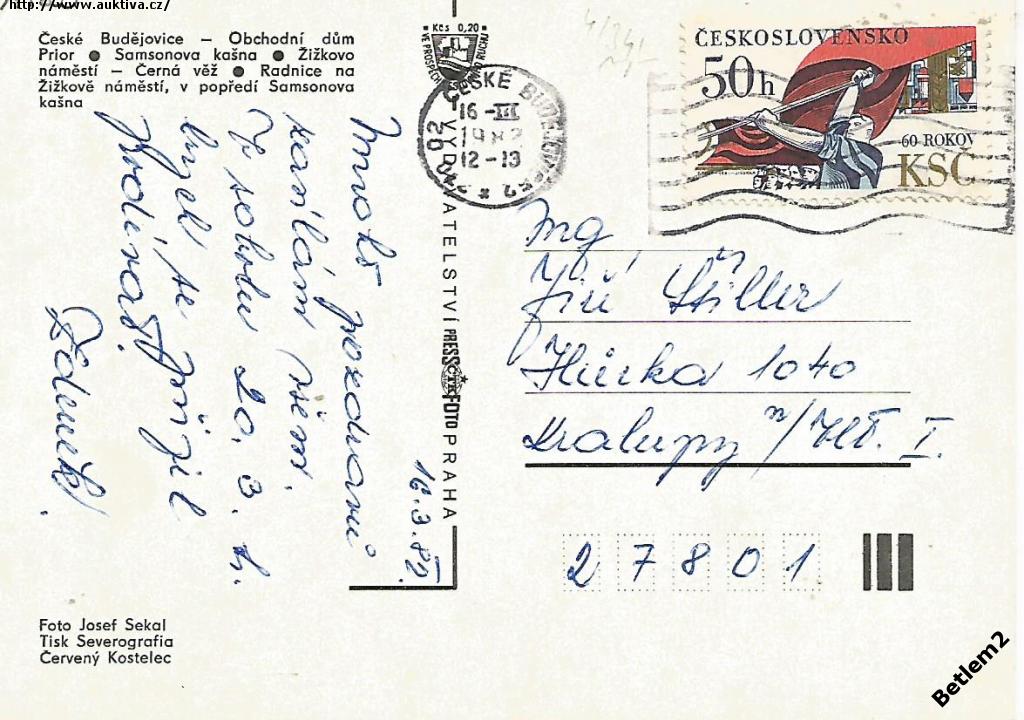 http://www.auktiva.cz/
České Budějovice – Obchodní dům
Prior ● Samsonova kašna ● Žižkovo
náměstí – Černá věž ● Radnice na
Žižkově náměstí, v popředí Samsonova
kašna
Kčs 0,20
ČESKÉ BUDĚJOVICE 2
16 -III
1982
12-13
02
ČESKOSLOVENSKO
50h
60 ROKOV
KSČ
16.3.82.
Mnoho pozdravů
zasílám všem.
V sobotu 20. 3. t.
bych se přijel
Zdeněk.
VYDAVATELSTVÍ PRESSFOTO PRAHA
Ing
Jiří Štiller
Hůrka 1040
Kralupy n/Vlt. I.
27801
Foto Josef Sekal
Tisk Severografia
Červený Kostelec
Betlem2